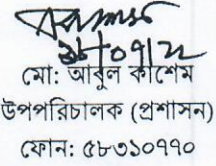 মো: আবুল কাশেম
উপপরিচালক (প্রশাসন)
ফোন: ৫৮৩১০৭৭০